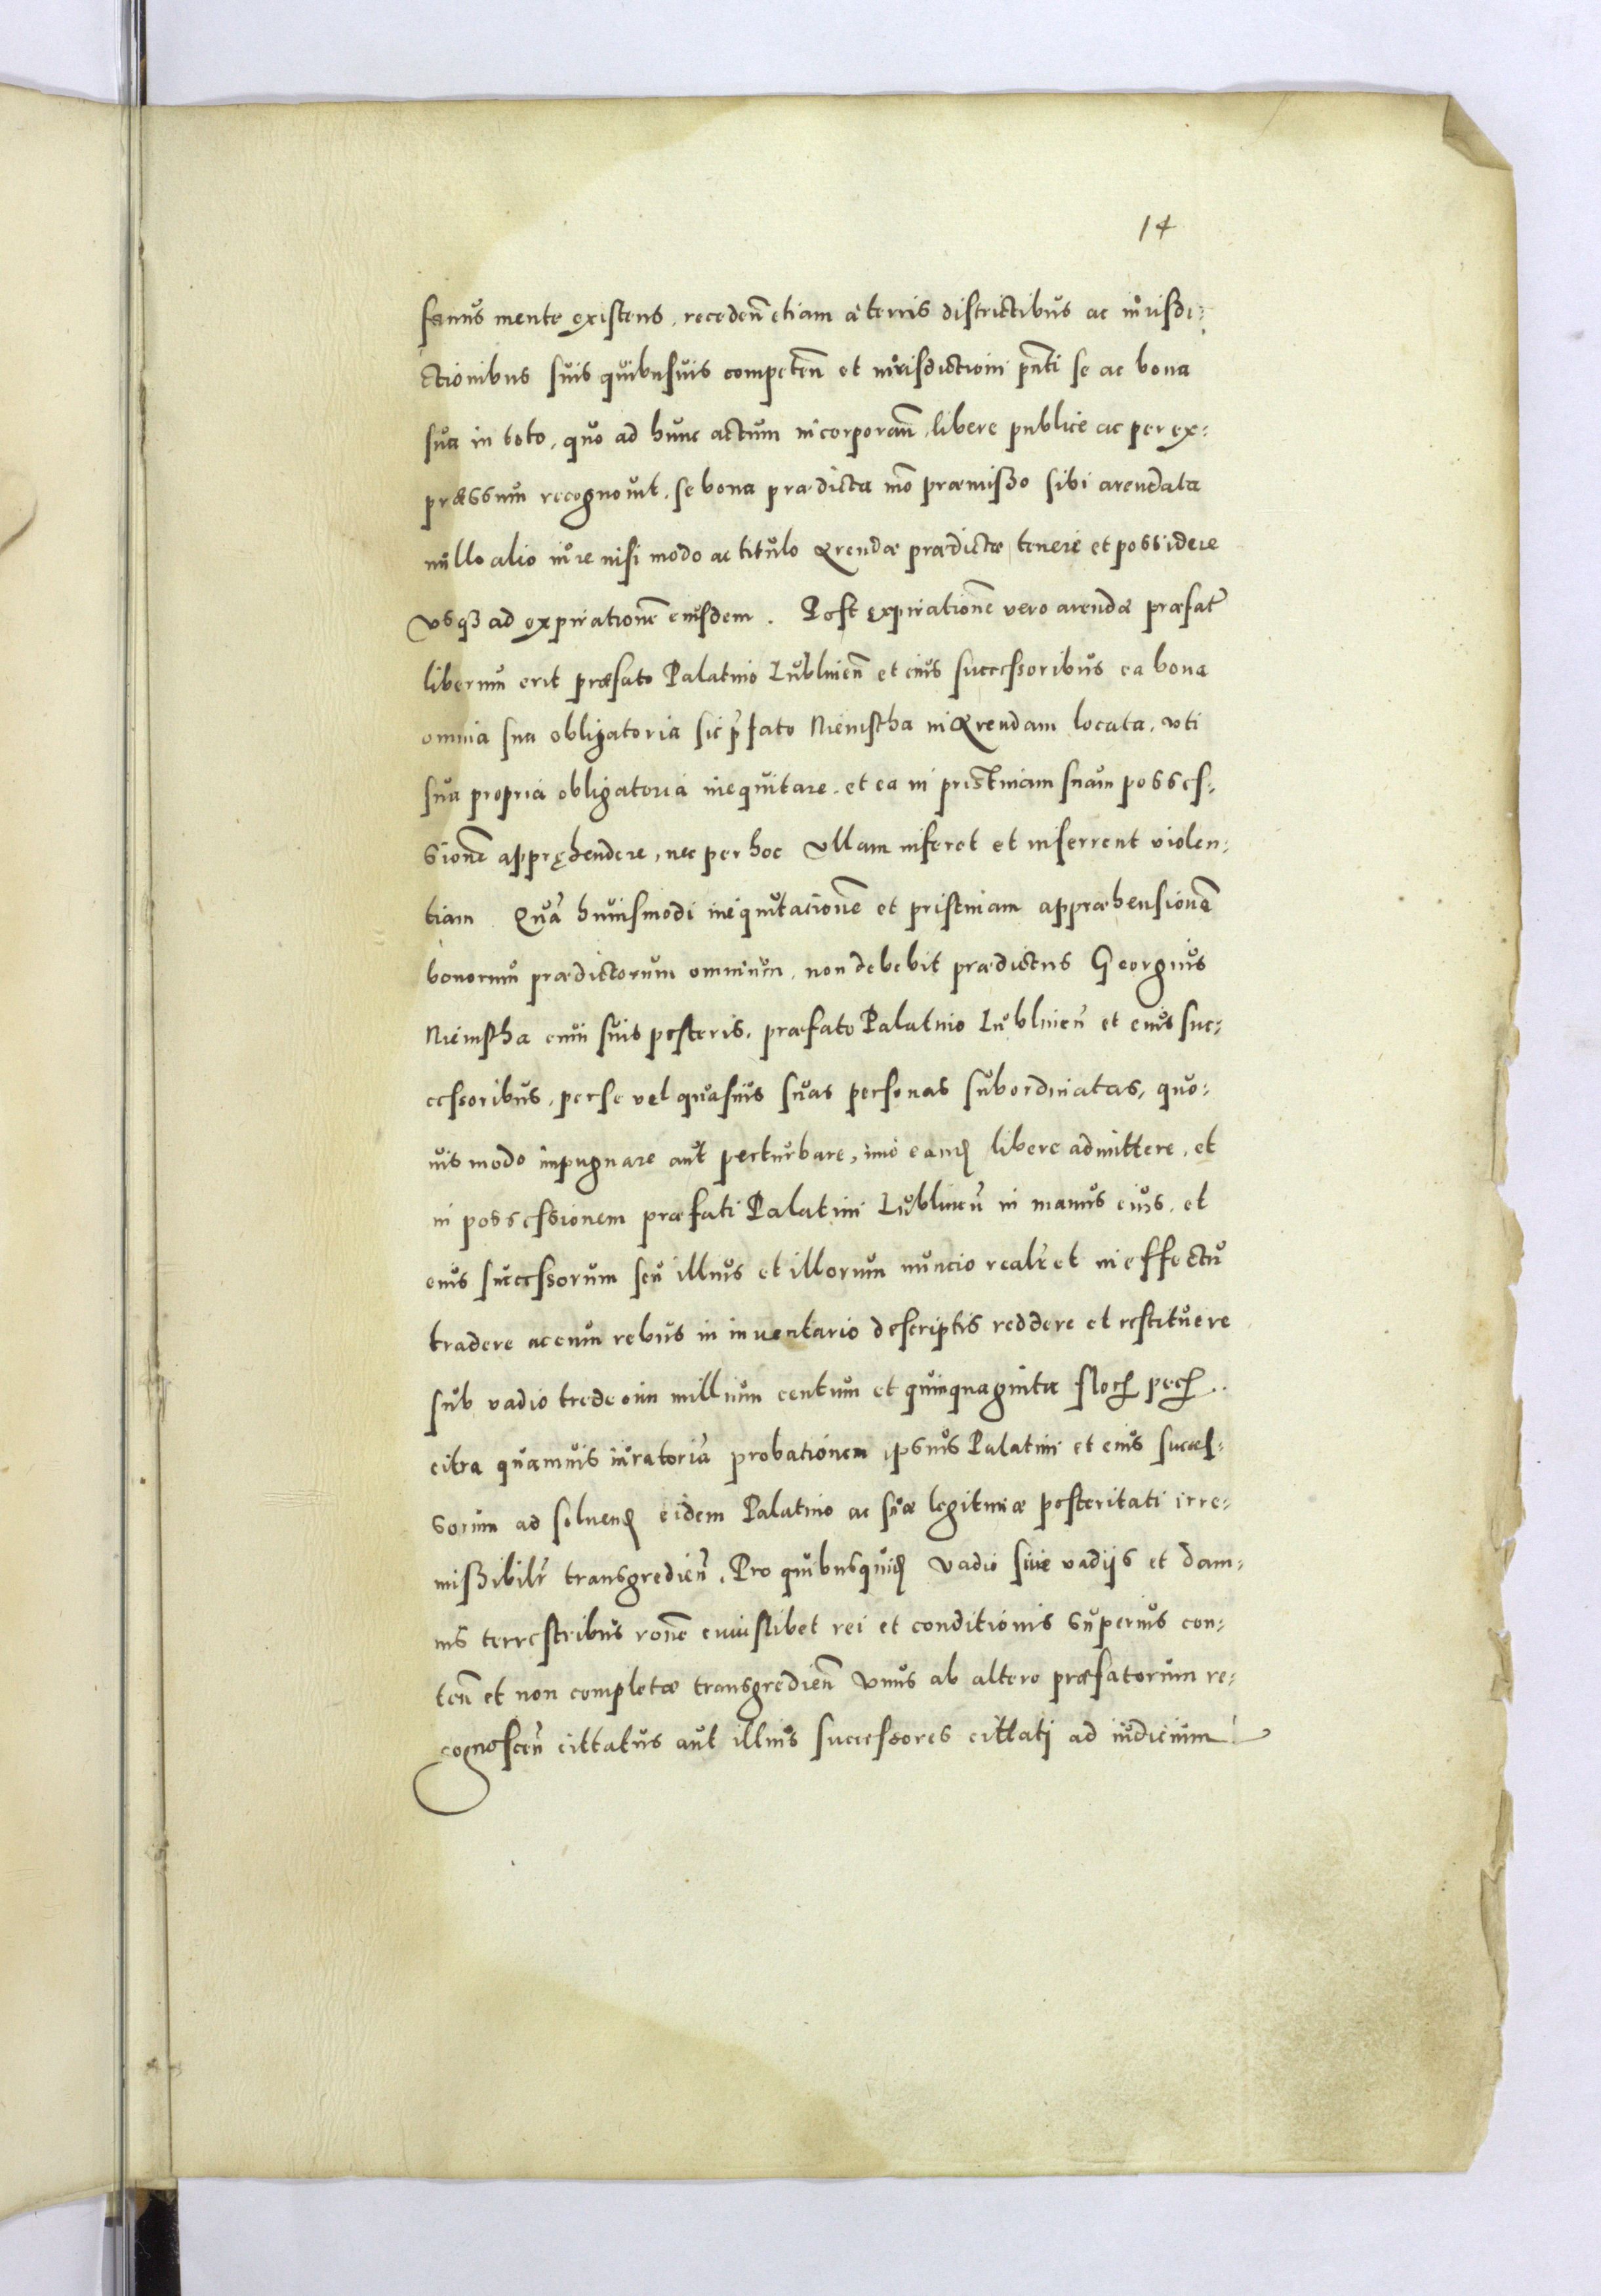 14
sanus mente existens, receden̄ etiam à terris districtibus ac iurisdi-
ctionibus suis quibusuis competen̄ et iurisdictioni pn̄ti se ac bona
sua in toto, quo ad hunc actum incorporan̄, libere publice ac per ex-
præssum recognouit, se bona prædicta mō præmisso sibi arendata
nullo alio iure nisi modo ac titulo Arendæ prædictæ tenere et possidere
vsq3 ad expirationē eiusdem. Post expirationē vero arendæ præfatæ
liberum erit præfato Palatino Lublinen̄ et eius successoribus ea bona
omnia sua obligatoria sic p̄fato Niemstha in Arendam locata, vti
sua propria obligatoria inequitare, et ea in pristinam suam posses-
sionē appręhendere, nec per hoc vllam inferet et inferrent violen-
tiam. Quā huiusmodi inequitationē et pristinam appræhensionē
bonorum prædictorum omnium, non debebit prædictus Georgius
Niemstha cum suis posteris, præfato Palatino Lublinen̄ et eius suc-
cessoribus, per se vel quasuis suas personas subordinatas, quo-
uis modo impugnare aut perturbare, imo eand libere admittere, et
in possessionem præfati Palatini Lublinen̄ in manus eius, et
eius successorum seu illius et illorum nuncio realr̄ et in effectu
tradere ac cum rebus in inuentario descriptis reddere et restituere
sub vadio tredecim millium centum et quinquaginta flor pec.
citra quamuis iuratoriā probationem ipsius Palatini et eius succes-
sorum ad soluend eidem Palatino ac suæ legitimæ posteritati irre-
missibilr̄ transgredien̄. Pro quibusquid vadio siue vadijs et dam-
nis terrestribus rōne cuiuslibet rei et conditionis superius con-
ten̄ et non completæ transgredien̄ vnus ab altero præfatorum re-
cognoscen̄ cittatus aut illius successores cittati ad iudicium